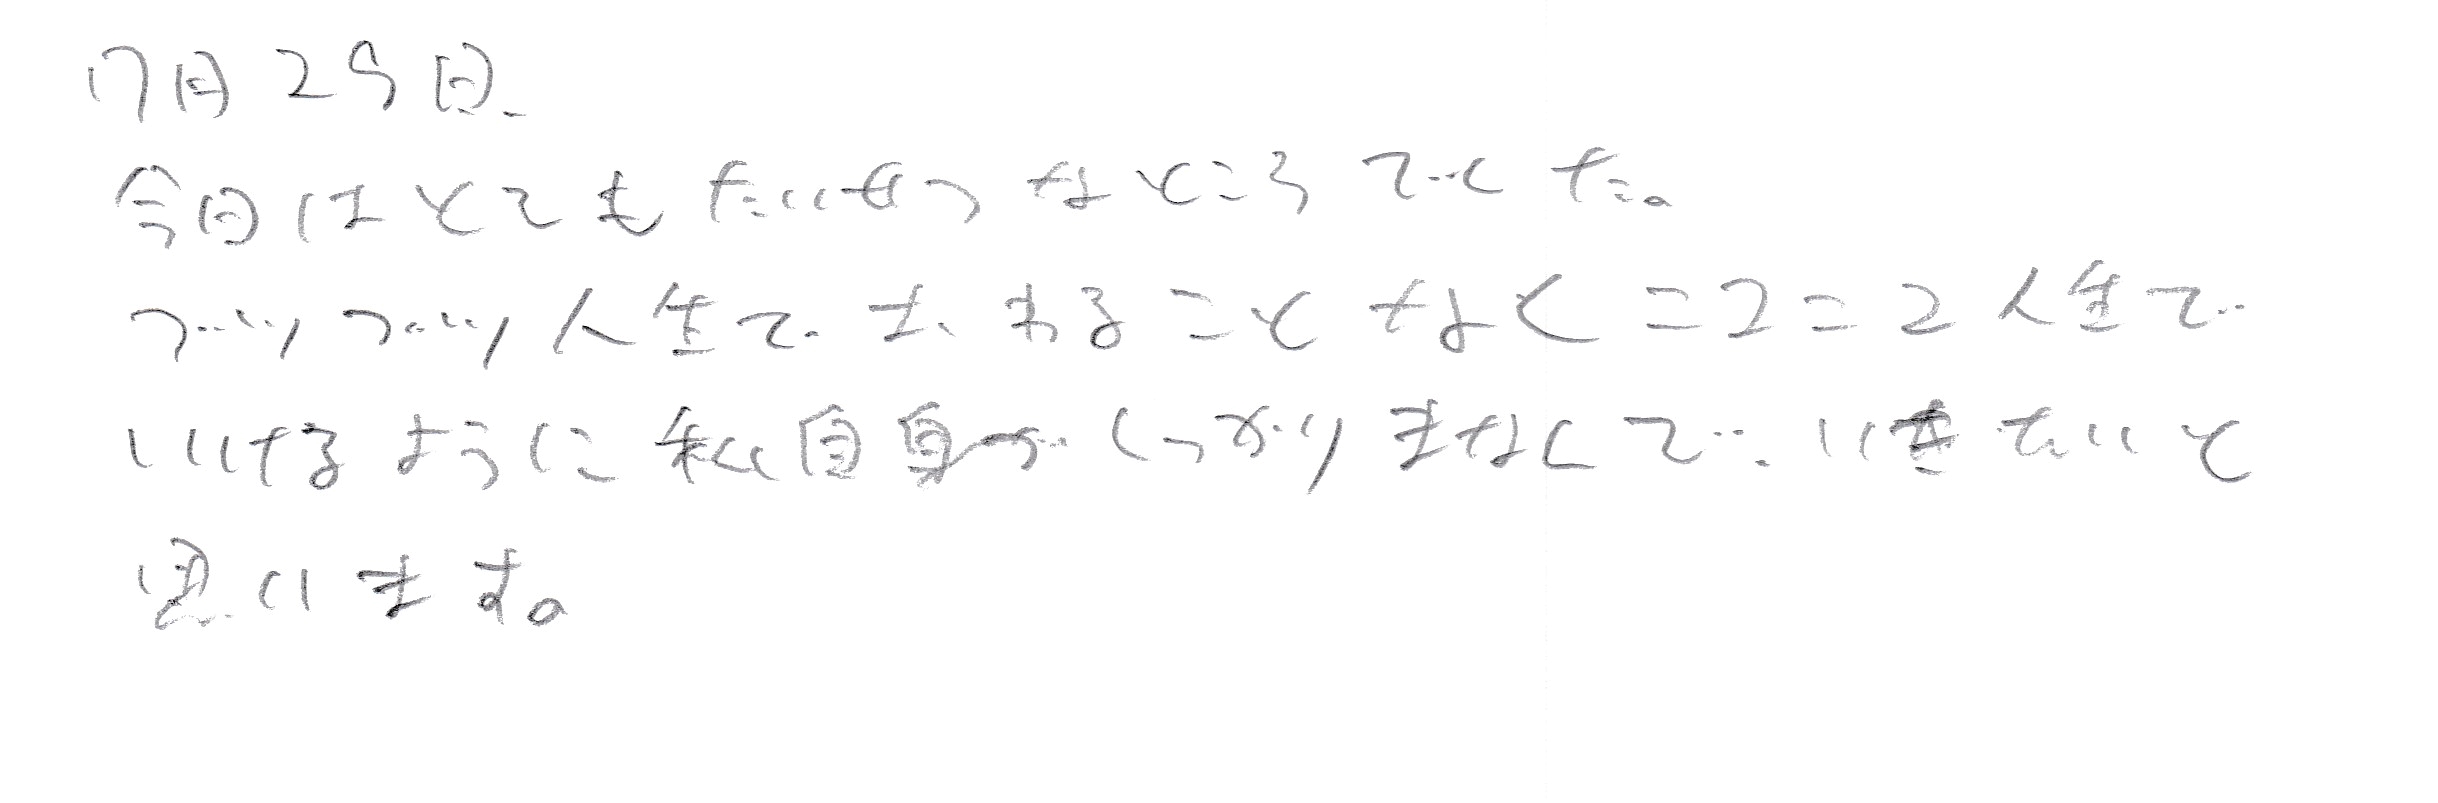 7月29日.
今日はとてもたいせつなところでした。
ブツブツ人生で おわることなくニコニコ人生で
いけるように私自身がしっかりまなんで いきたいと
思います。